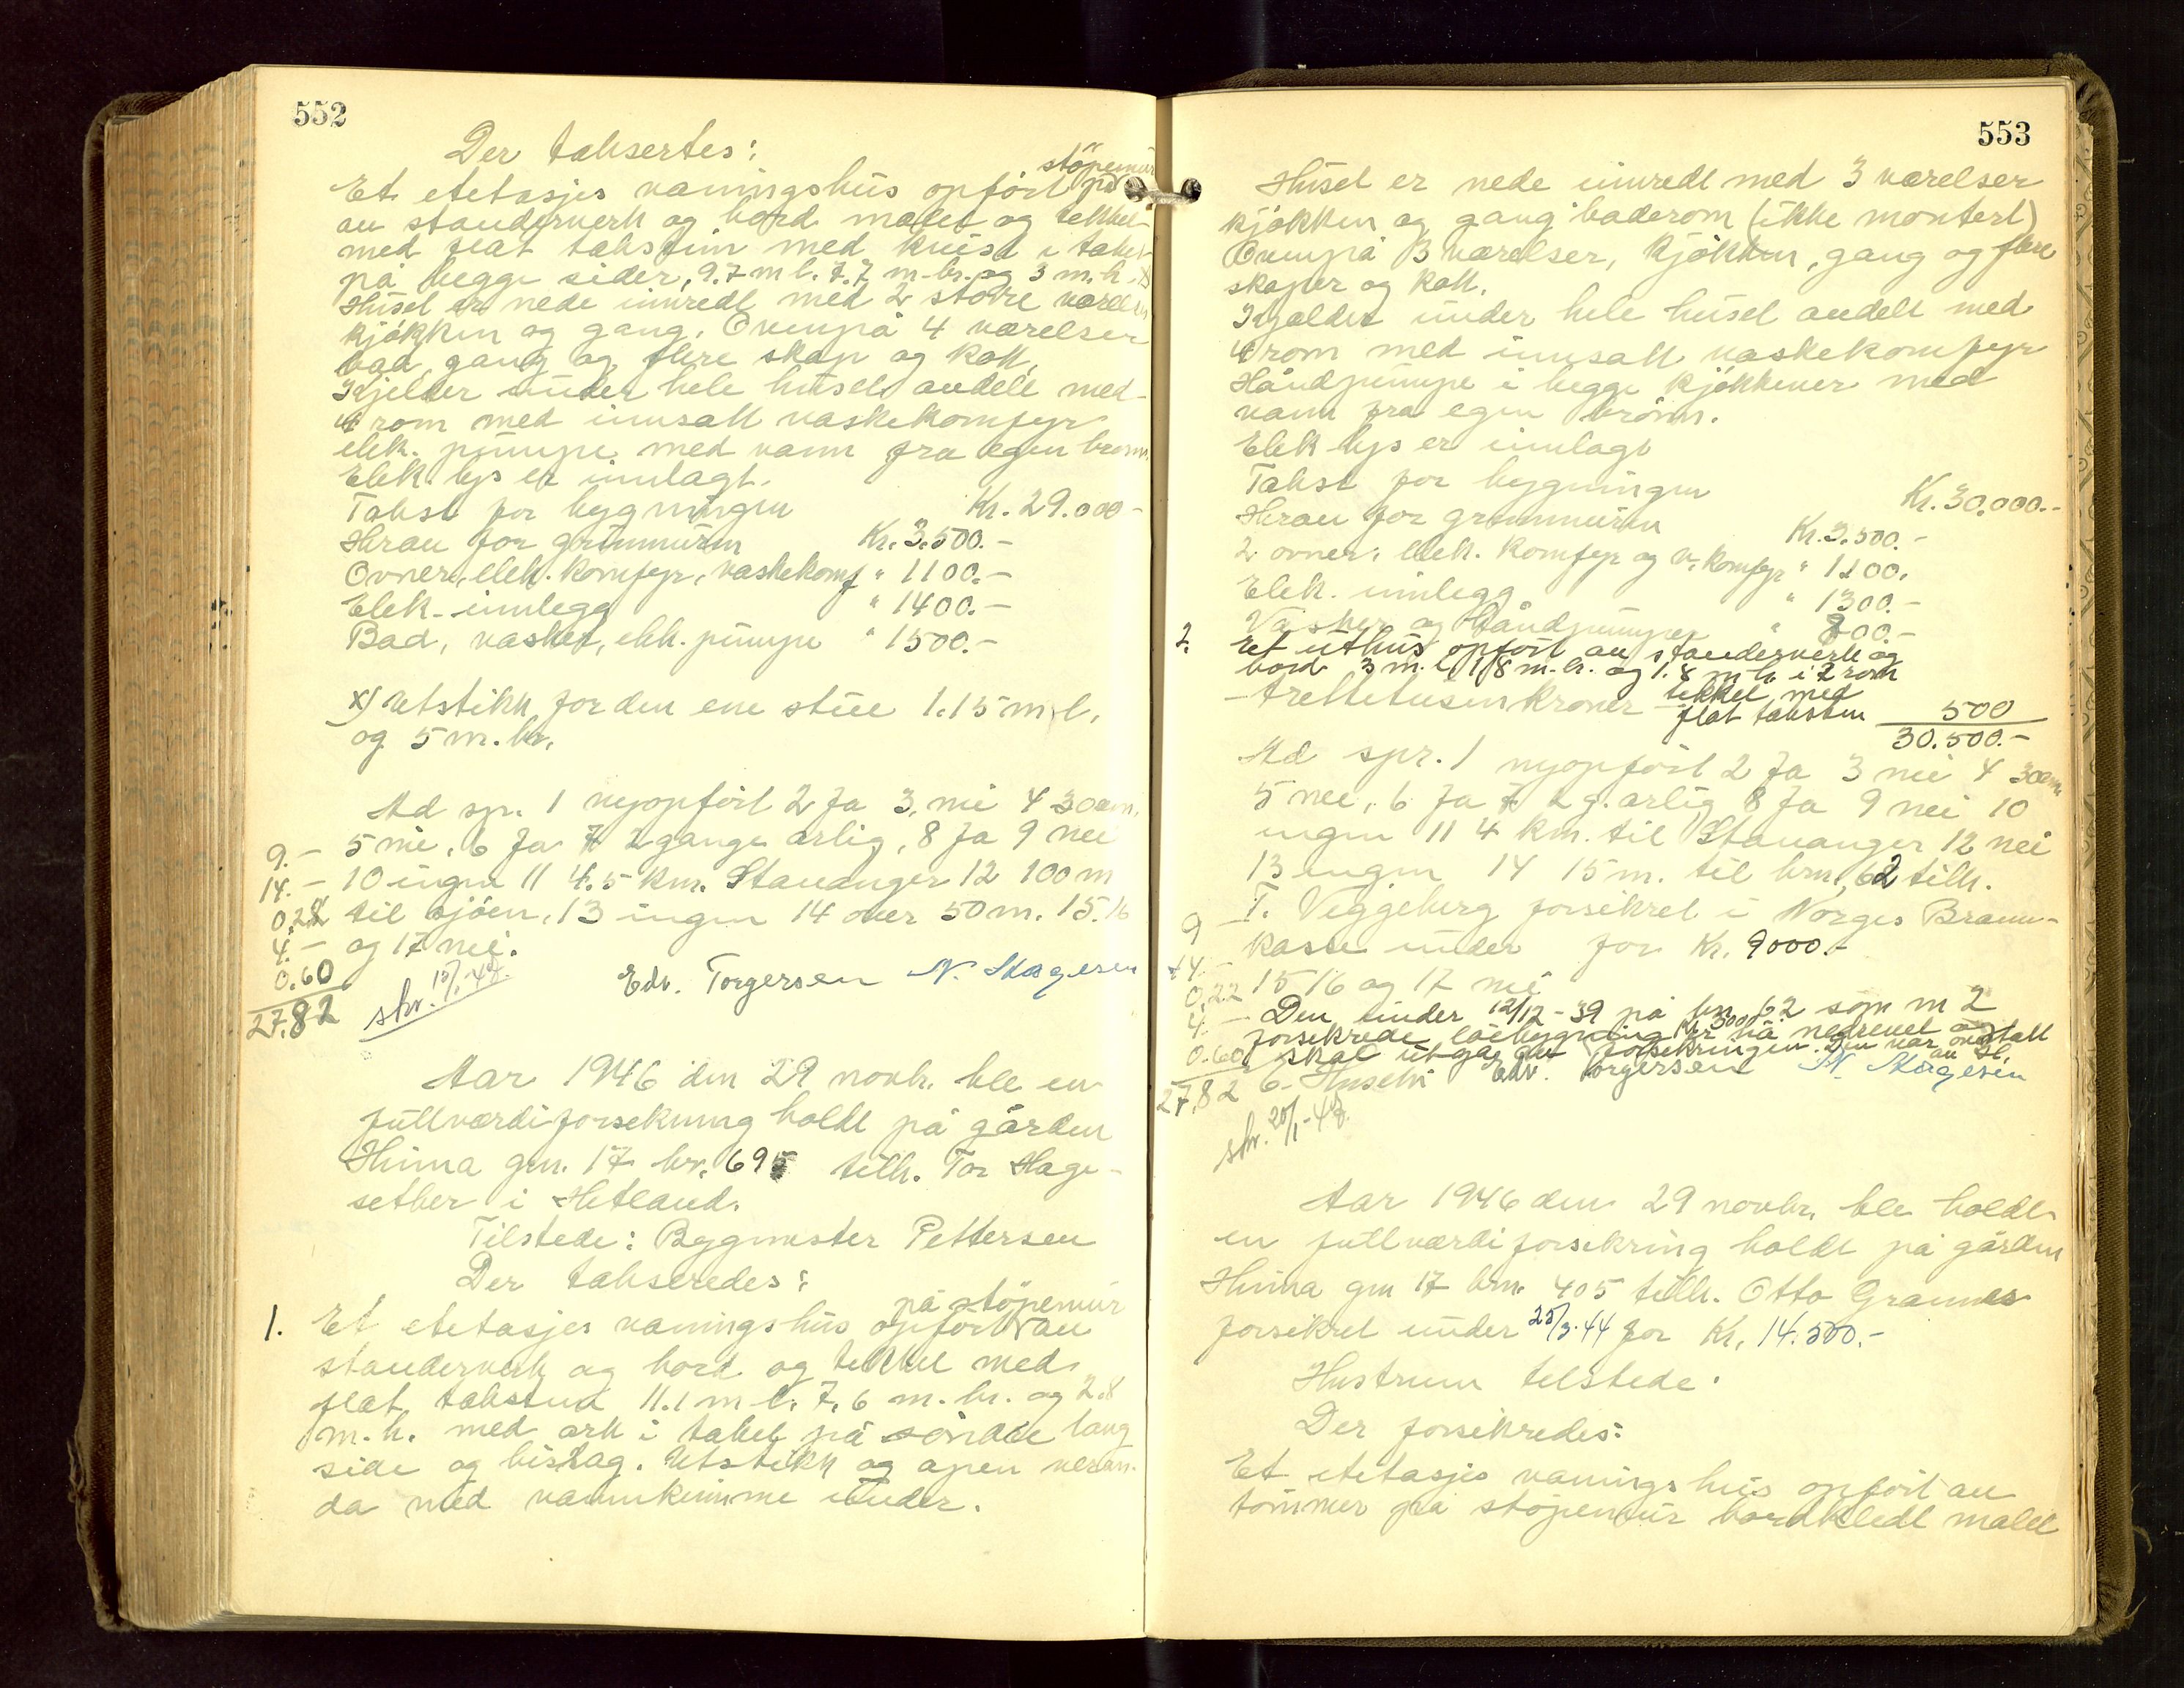 552
Der taksertes:
støpemur
Et etetasjes vaningshus opført på
av standerverk og bord malet og tekket
med flat taksten med kvist i taket
på begge sider, 9.7 m l. 7.7 m-br. og 3 m. h. x)
Huset er nede innredt med 2 større værelser
kjøkken og gang. Ovenpå 4 værelser
bad, gang og flere skap og kott.
Kjelder under hele huset avdelt med
4 rom med innsatt vaskekomfyr
elek. pumpe med vann fra egen brønn.
Elek. lys er innlagt.
Takst for bygningen Kr. 29.000-
Herav for grunnmuren Kr. 3.500.-
Ovner, elek. komfyr, vaskekomf " 1100.-
Elek. innlegg " 1400.-
Bad, vasker, elek. pumpe " 1500.-
x) Utstikk for den ene stue 1.15 m l.
og 5 m. br.
Ad sp. 1 nyopført 2 Ja 3. nei 4 30 cm.
5 nei, 6 Ja 7 2 gange årlig, 8 Ja 9 nei
10 ingen 11 4.5 km. Stavanger 12 100 m
til sjøen, 13 ingen 14 over 50 m. 15. 16
og 17 nei.
9.-
14.-
0.22
4.-
0.60
27.82
skr. 15/1-47.
Edv. Torgersen N. Stagesen
Aar 1946 den 29 novbr. ble en
fullværdiforsekring holdt på gården
Hinna gnr. 17 br. 695 tilh. Tor Hage-
sether i Hetland.
Tilstede: Byggmester Pettersen
Der takseredes:
på støpemur
1. Et etetasjes vaningshus opført av
standerverk og bord og tekket med
flat taksten 11.1 m l. 7.6 m. br. og 2.8
m. h. med ark i taket på søndre lang
side og bislag. Utstikk og åpen veran-
da med vannkumme under.
553
Huset er nede innredt med 3 værelser
kjøkken og gang baderom (ikke montert)
Ovenpå 3 værelser, kjøkken, gang og flere
skaper og kott.
Kjelder under hele huset avdelt med
4 rom med innsatt vaskekomfyr
Håndpumpe i begge kjøkkener med
vann fra egen brønn.
Elek lys er innlagt
Takst for bygningen Kr. 30.000.-
Herav for grunnmuren Kr. 3.500.-
2 ovner, elek. komfyr og v. komfyr " 1200.
Elek. innlegg " 1300.-
Vasker og håndpumper " 800.-
2. Et uthus opført av standerverk og
bord 3 m. l. 1,8 m. br. og 1.8 m h. i 2 rom
- trettetusen kroner - tekket med
flat taksten 500
30.500.-
Ad spr. 1 nyopført 2 Ja 3 nei 4 30 cm
5 nei, 6 Ja 7 2 g. årlig 8 Ja 9 nei 10
ingen 11 4 km. til Stavanger 12 nei
13 ingen 14 15 m. til brnr. 62 tilh.
T. Veggeberg forsikret i Norges Brann-
kasse under for Kr. 9000.-
15 16 og 17 nei
Den under 12/12-39 på brn 62 som nr 2
forsekrede løebygning kr 3000 er nå nedrevet og
skal utgå av forsekringen. Den var overtatt
av H.
6. Huseby Edv. Torgersen N. Stagesen
9 -
14.-
0,22
4.-
0.60
27,82
skr. 20/1-47.
Aar 1946 den 29 novbr. ble holdt
en fullværdiforsekring holdt på gården
Hinna gnr 17 brnr. 405 tilh. Otto Grannes
forsikret under 25/3.44 for Kr. 14.500.-
Hustruen tilstede.
Der forsikredes:
Et etetasjes vaningshus opført av
tømmer på støpemur bordkledt malet